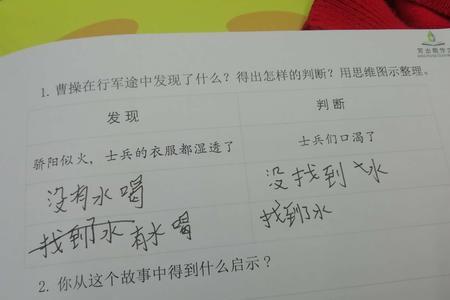 1. 曹操在行军途中发现了什么？得出怎样的判断？用思维图示整理。
发现 判断
骄阳似火，士兵的衣服都湿透了 士兵们口渴了
没有水喝 没找到水
找到了水 有水喝 找到了水
2. 你从这个故事中得到什么启示？